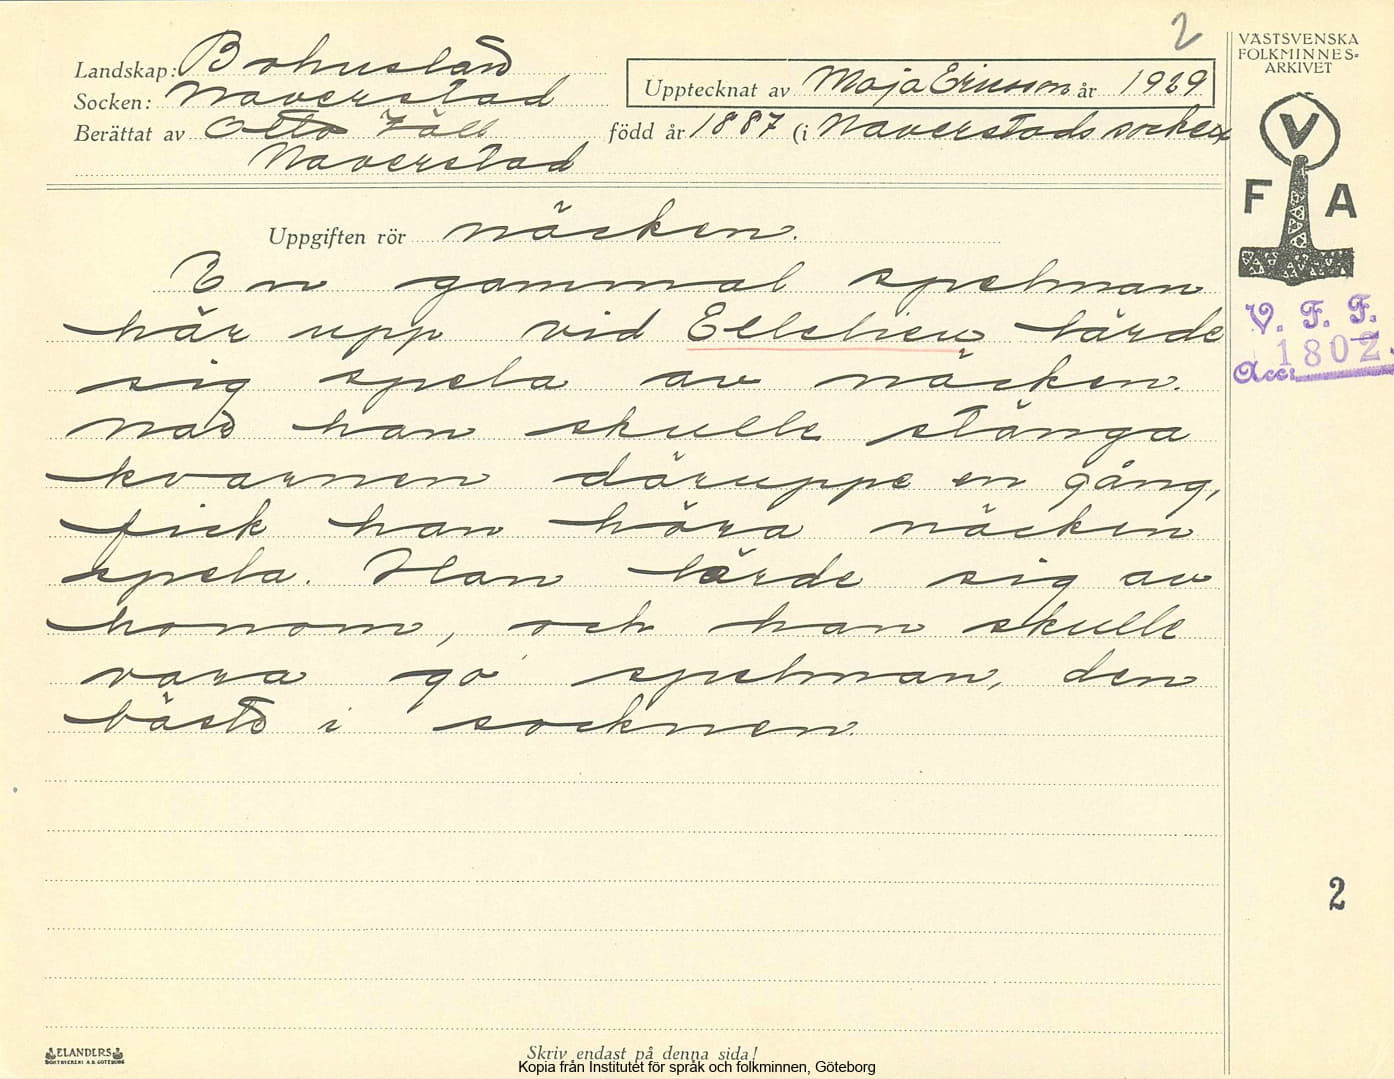 2
VÄSTSVENSKA
FOLKMINNES-
ARKIVET
Landskap: Bohuslän
Socken: Naverstad
Upptecknat av Maja Ericsson år 1929
Berättat av Otto Häll född år 1887 (i Naverstads socken
Naverstad
V
F A
Uppgiften rör näcken.
En gammal spelman
här upp vid lärde
sig spela av näcken.
När han skulle stänga
kvarnen däruppe en gång,
fick han höra näcken
spela. Han lärde sig av
honom, och han skulle
vara go' spelman, den
bäste i socknen.
V. F. F.
Acc: 1802.
2
ELANDERS
BOKTRYCKERI A.B. GÖTEBORG
Skriv endast på denna sida!
Kopia från Institutet för språk och folkminnen, Göteborg